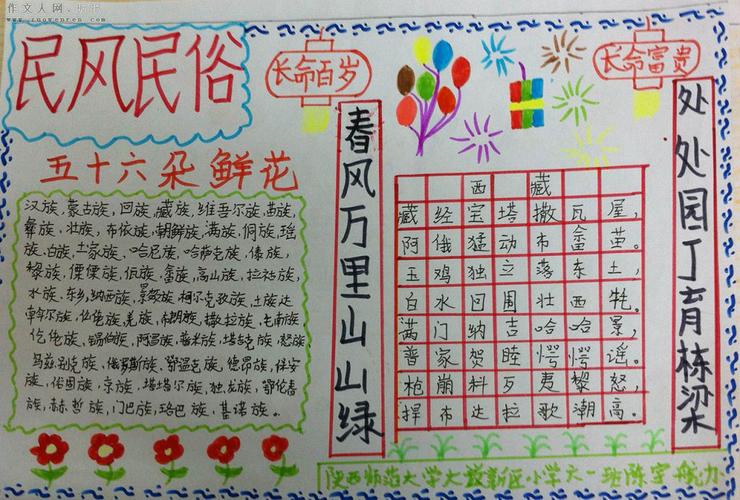 作文人网
www.zuowenren.com
民风民俗
长命百岁
长命富贵
五十六朵鲜花
汉族,蒙古族,回族,藏族,维吾尔族,苗族,
彝族,壮族,布依族,朝鲜族,满族,侗族,瑶
族,白族,土家族,哈尼族,哈萨克族,傣族,
黎族,傈僳族,佤族,畲族,高山族,拉祜族,
水族,东乡,纳西族,景颇族,柯尔克孜族,土族,达
斡尔族,仫佬族,羌族,布朗族,撒拉族,毛南族,
仡佬族,锡伯族,阿昌族,普米族,塔吉克族,怒族
乌兹别克族,俄罗斯族,鄂温克族,德昂族,保安
族,裕固族,京族,塔塔尔族,独龙族,鄂伦春
族,赫哲族,门巴族,珞巴族,基诺族。
春风万里山山绿
西藏
藏经宝塔撒瓦屋,
阿俄猛动布畲苗。
玉鸡独立落东土,
白水回围壮西牝。
满门纳吉哈哈景,
普家贺睦愕愕谣。
枪崩料歹夷黎怒,
捍布达拉歌潮高。
处处园丁育栋梁
陕西师范大学大兴新区小学六一班陈宇航力